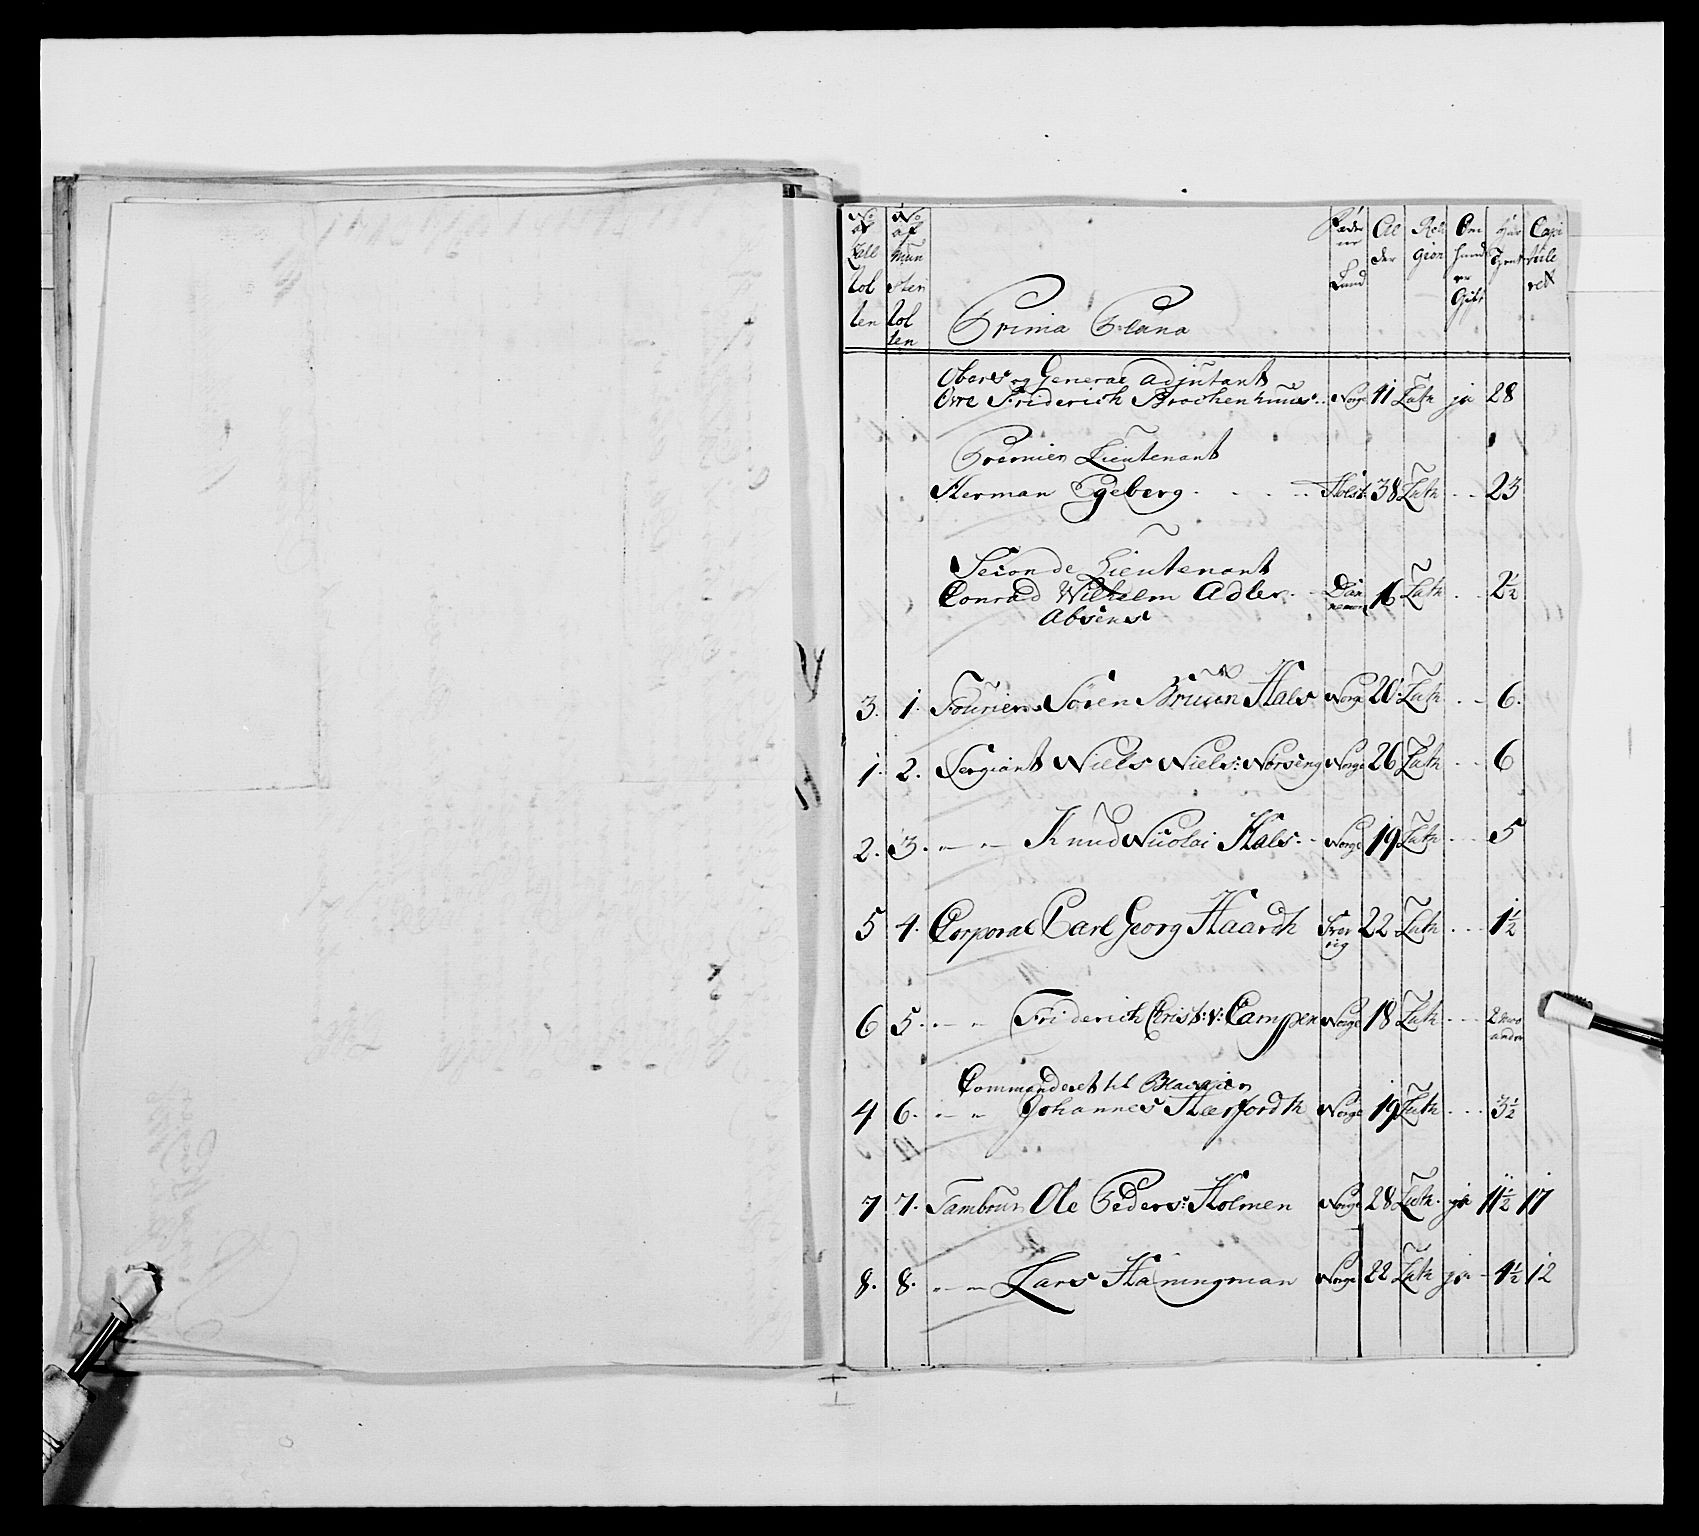 No af Rull Rol len
No af Mun ster Rol len
Prima Plana
Fæder ne Land
Al der
Reli gion
Om hand er Gift
Har Tient
Capi tule ret
Oberst og General Adjutant
Ove Friderich Brochenhuus Norge 41 Luth ja 28
Premier Lieutenant
Herman Egeberg Holst: 38 Luth 23
Seconde Lieutenant
Conrad Wilhelm Adler Dan nemark 16 Luth 2½
Absens
3. 1. Fourier Sören Bruun Hals Norge 20 Luth 6.
1. 2. Sergiant Niels Niels: Norseng Norge 26 Luth 6
2. 3. Knud Nicolai Hals Norge 19 Luth 5
5 4. Corporal Carl Georg Haardh 22 Luth 1½
6 5. Friderich Christ: v: Campen Norge 18 Luth
Commanderet til
4 6. Johannes Hærfordth Norge 19 Luth 3½
7 7. Tambour Ole Peders: Holmen Norge 28 Luth. ja 11½ 17
8. 8. Lars Haningman Norge 22 Luth ja 4½ 12